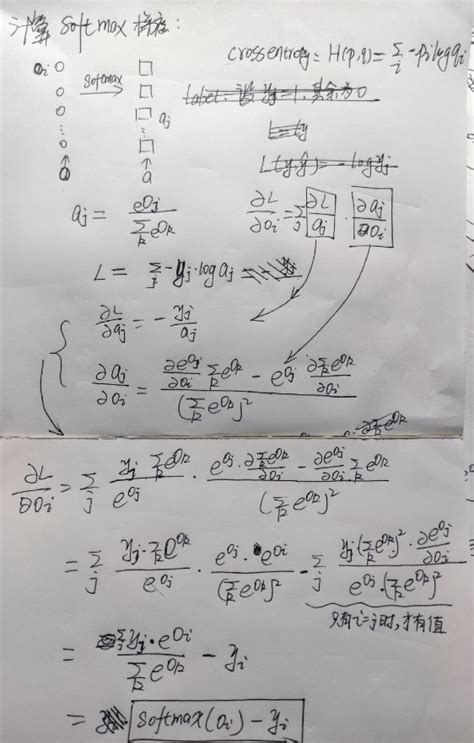 计算 softmax 梯度:
crossentropy: H(p,q) = Σ_i -p_i log q_i
o_i softmax a_j
o a
a_j = e^{o_j} / Σ_k e^{o_k}
∂L/∂o_i = Σ_j ∂L/a_j · ∂a_j/∂o_i
L = Σ_j -y_j·log a_j
∂L/∂a_j = - y_j/a_j
∂a_j/∂o_i = (∂e^{o_j}/∂o_i Σ_k e^{o_k} - e^{o_j} ∂Σ_k e^{o_k}/∂o_i) / (Σ_k e^{o_k})^2
∂L/∂o_i = Σ_j (y_j Σ_k e^{o_k} / e^{o_j}) · (e^{o_j} · ∂Σ_k e^{o_k}/∂o_i - ∂e^{o_j}/∂o_i Σ_k e^{o_k}) / (Σ_k e^{o_k})^2
= Σ_j (y_j · Σ_k e^{o_k} / e^{o_j}) · (e^{o_j} · e^{o_i} / (Σ_k e^{o_k})^2) - Σ_j (y_j (Σ_k e^{o_k})^2 · ∂e^{o_j}/∂o_i) / (e^{o_j} · (Σ_k e^{o_k})^2)
只有i=j时,才有值
= Σ_j y_j · e^{o_i} / Σ_k e^{o_k} - y_i
= softmax(o_i) - y_i